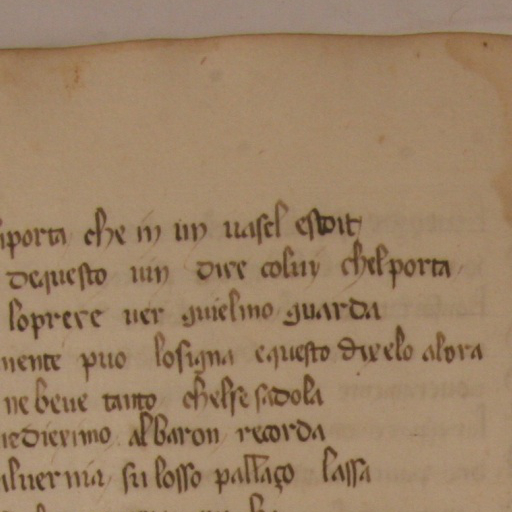 porta che in un uasel estoit
dequesto uin dire coluy chelporta
loprere uer guielmo guarda
mente puo losigna equesto direlo alora
ne beue tanto chelse sadola
dieximo al baron recorda
aluernia su losso pallaço lassa